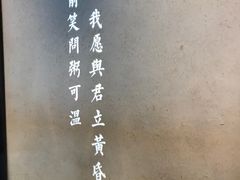 我愿與君立黃昏
前笑問粥可溫